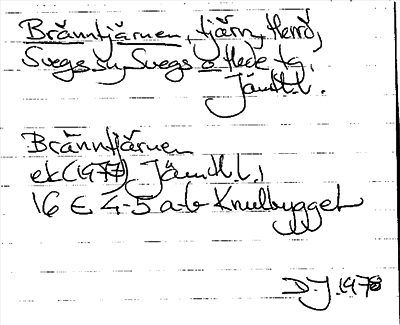 Bränntjärnen, tjärn, Herrö,
Svegs sn, Svegs o Hede tg,
Jämtl.l.
Bränntjärnen
ek (1977) Jämtl.l.,
16 E 4-5 a-b Knulbygget
DJ 1978